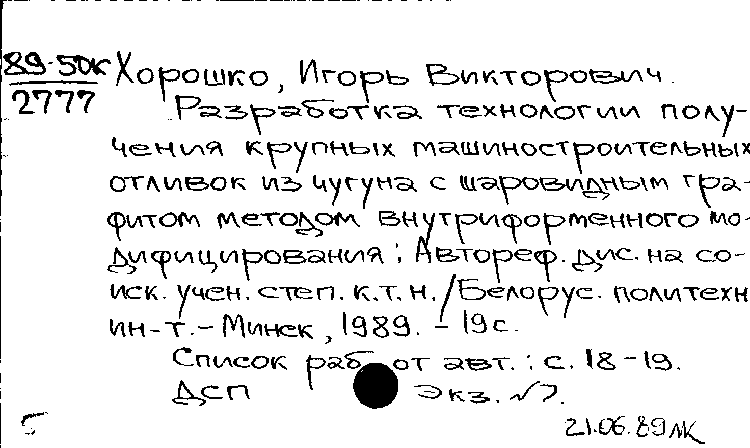 89-50к Хорошко, Игорь Викторович.
2777
Разработка технологии полу-
чения крупных машиностроительных
отливок из чугуна с шаровидным гра-
фитом методом внутриформенного мо-
дифицирования: Автореф. дис. на со-
иск. учен. степ. к.т.н. /Белорус. политехн
ин-т. - Минск, 1989. - 19с.
Список раб. от авт.: с. 18-19.
ДСП Экз. №7.
21.06.89